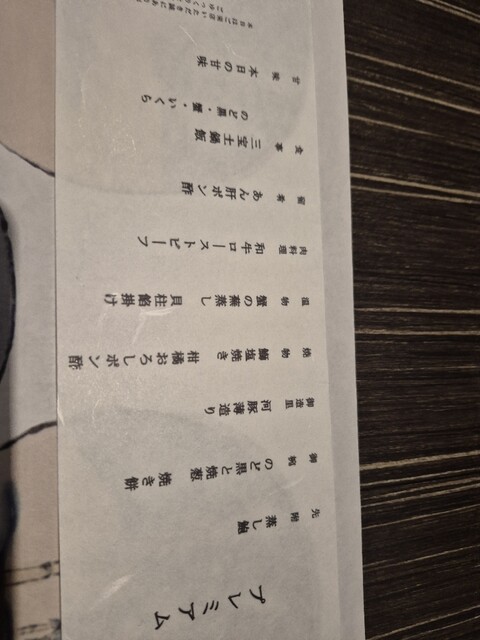 プレミアム
先附 蒸し鮑
御椀 のど黒と焼葱 焼き餅
御造里 河豚薄造り
焼物 鰤塩焼き 柑橘おろしポン酢
温物 蟹の蕪蒸し 貝柱餡掛け
肉料理 和牛ローストビーフ
留肴 あん肝ポン酢
食事 三宝土鍋飯
のど黒・蟹・いくら
本日の甘味
本日はご来店いただき誠にあり